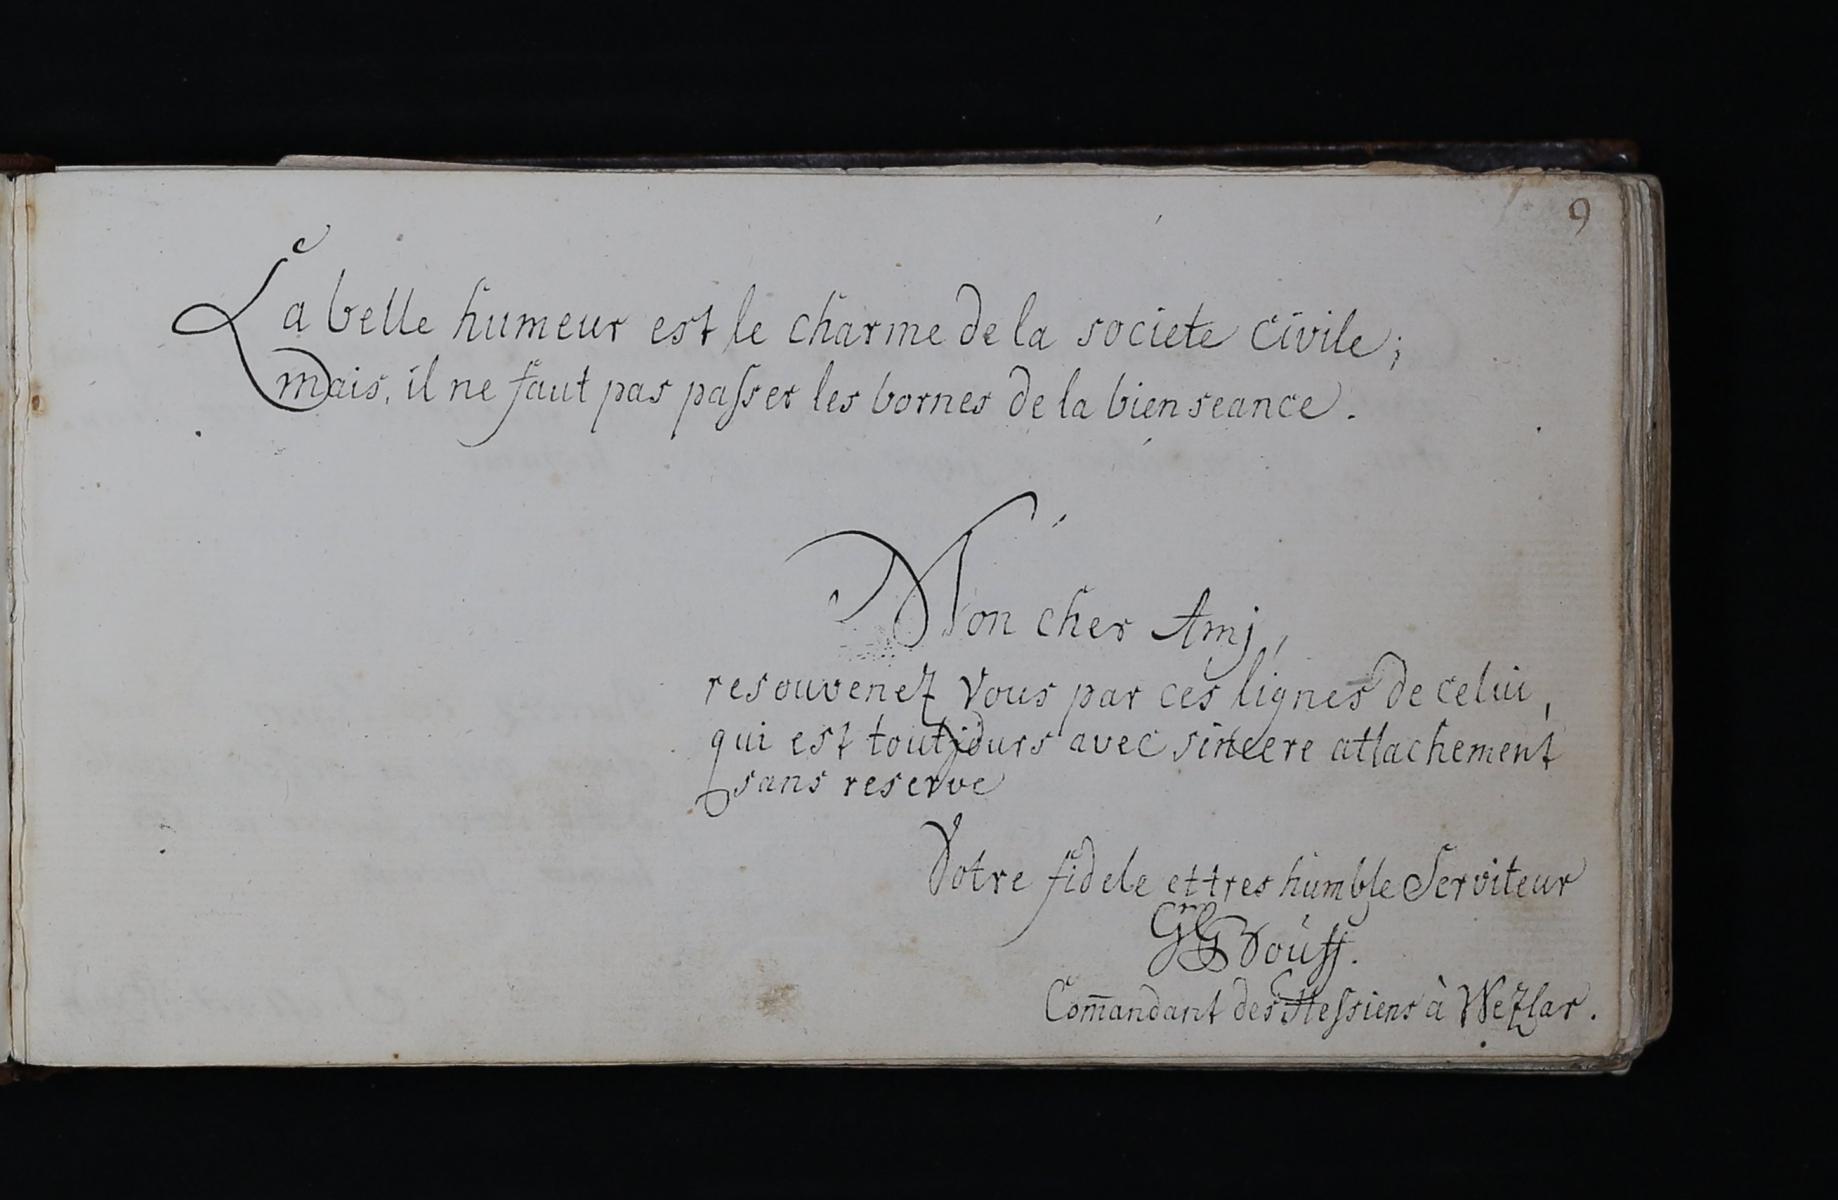 9
La belle humeur est le charme de la societe civile;
mais, il ne faut pas paſser les bornes de la bien seance.
Mon cher Amj,
resouvenez vous par ces lignes de celui,
qui est toutjours avec sincere attachement
sans reserve
Votre fidele et tres humble Serviteur
Com̅andant des Heſsiens à Wezlar.